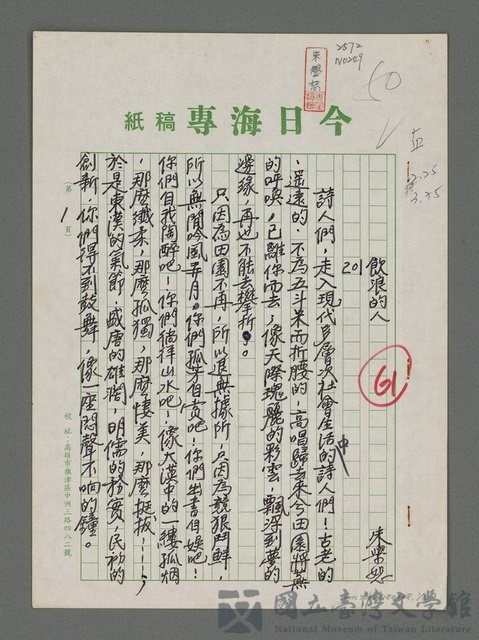 2572
N0249
50
五
3.25
3.25
今日海專稿紙
飲浪的人
201
朱學恕
61
詩人們，走入現代多層次社會生活中的詩人們！古老的
，遙遠的，不為五斗米而折腰的，高唱歸去來兮田園將蕪
的呼喚，已離你而去，像天際瑰麗的彩雲，飄浮到夢的
邊緣，再也不能去攀折。
只因為田園不再，所以退無據所，只因為競狠鬥鮮，
所以無閒吟風弄月。你們孤芳自賞吧！你們出書自娛吧！
你們自我陶醉吧！你們徜徉山水吧！像大漠中的一縷孤烟
，那麼纖柔，那麼孤獨，那麼悽美，那麼挺拔，……；
於是東漢的氣節，盛唐的雄闊，明儒的務實，民初的
創新，你們得不到鼓舞，像一座悶聲不响的鐘。
（第1頁）
校址：高雄市旗津區中洲三路四八二號
國立臺灣文學館
National Museum of Taiwan Literature